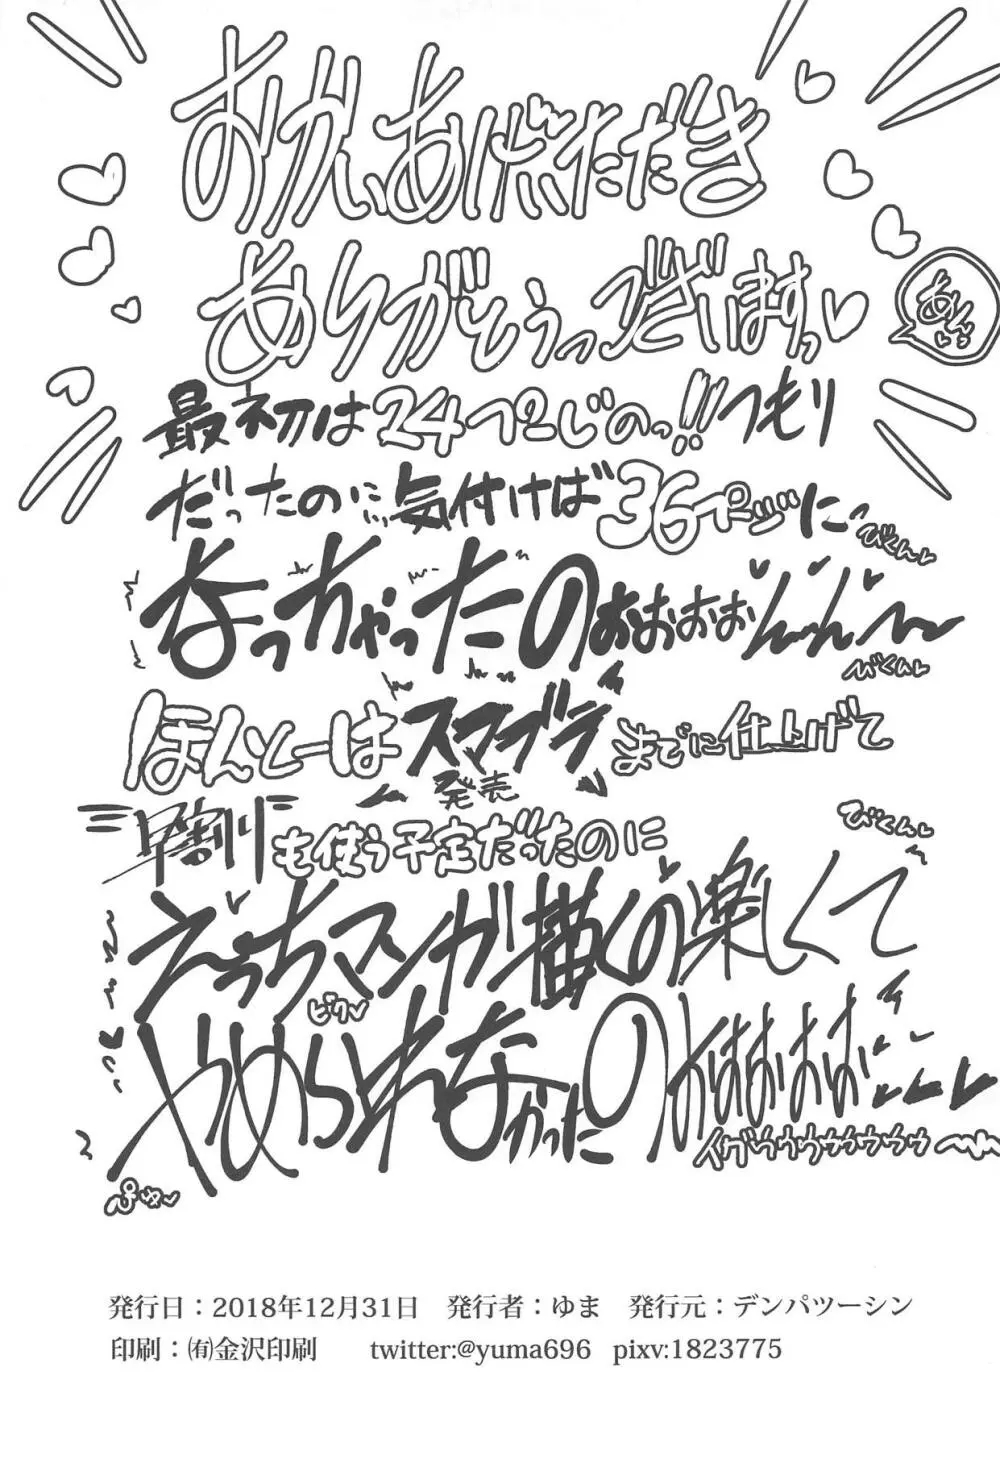 おかいあげいただき
ありがとうっございますっ♡
あんっ
最初は24ぺーじのっ!!!つもり
だったのに…気付けば36ページに
びくんっ
なっちゃったのぉおおおおんんん〜
びくんっ
ほんとーはスマブラまでに仕上げて
発売
早割りも使う予定だったのに
びくんっ
えっちマンガ描くの楽しくて
ビクッ
やめられなかったのぉほおおおお
イグゥゥゥゥゥゥゥゥゥ
ぷゅっ
発行日：2018年12月31日　発行者：ゆま　発行元：デンパツーシン
印刷：㈲金沢印刷　twitter:@yuma696　pixv:1823775